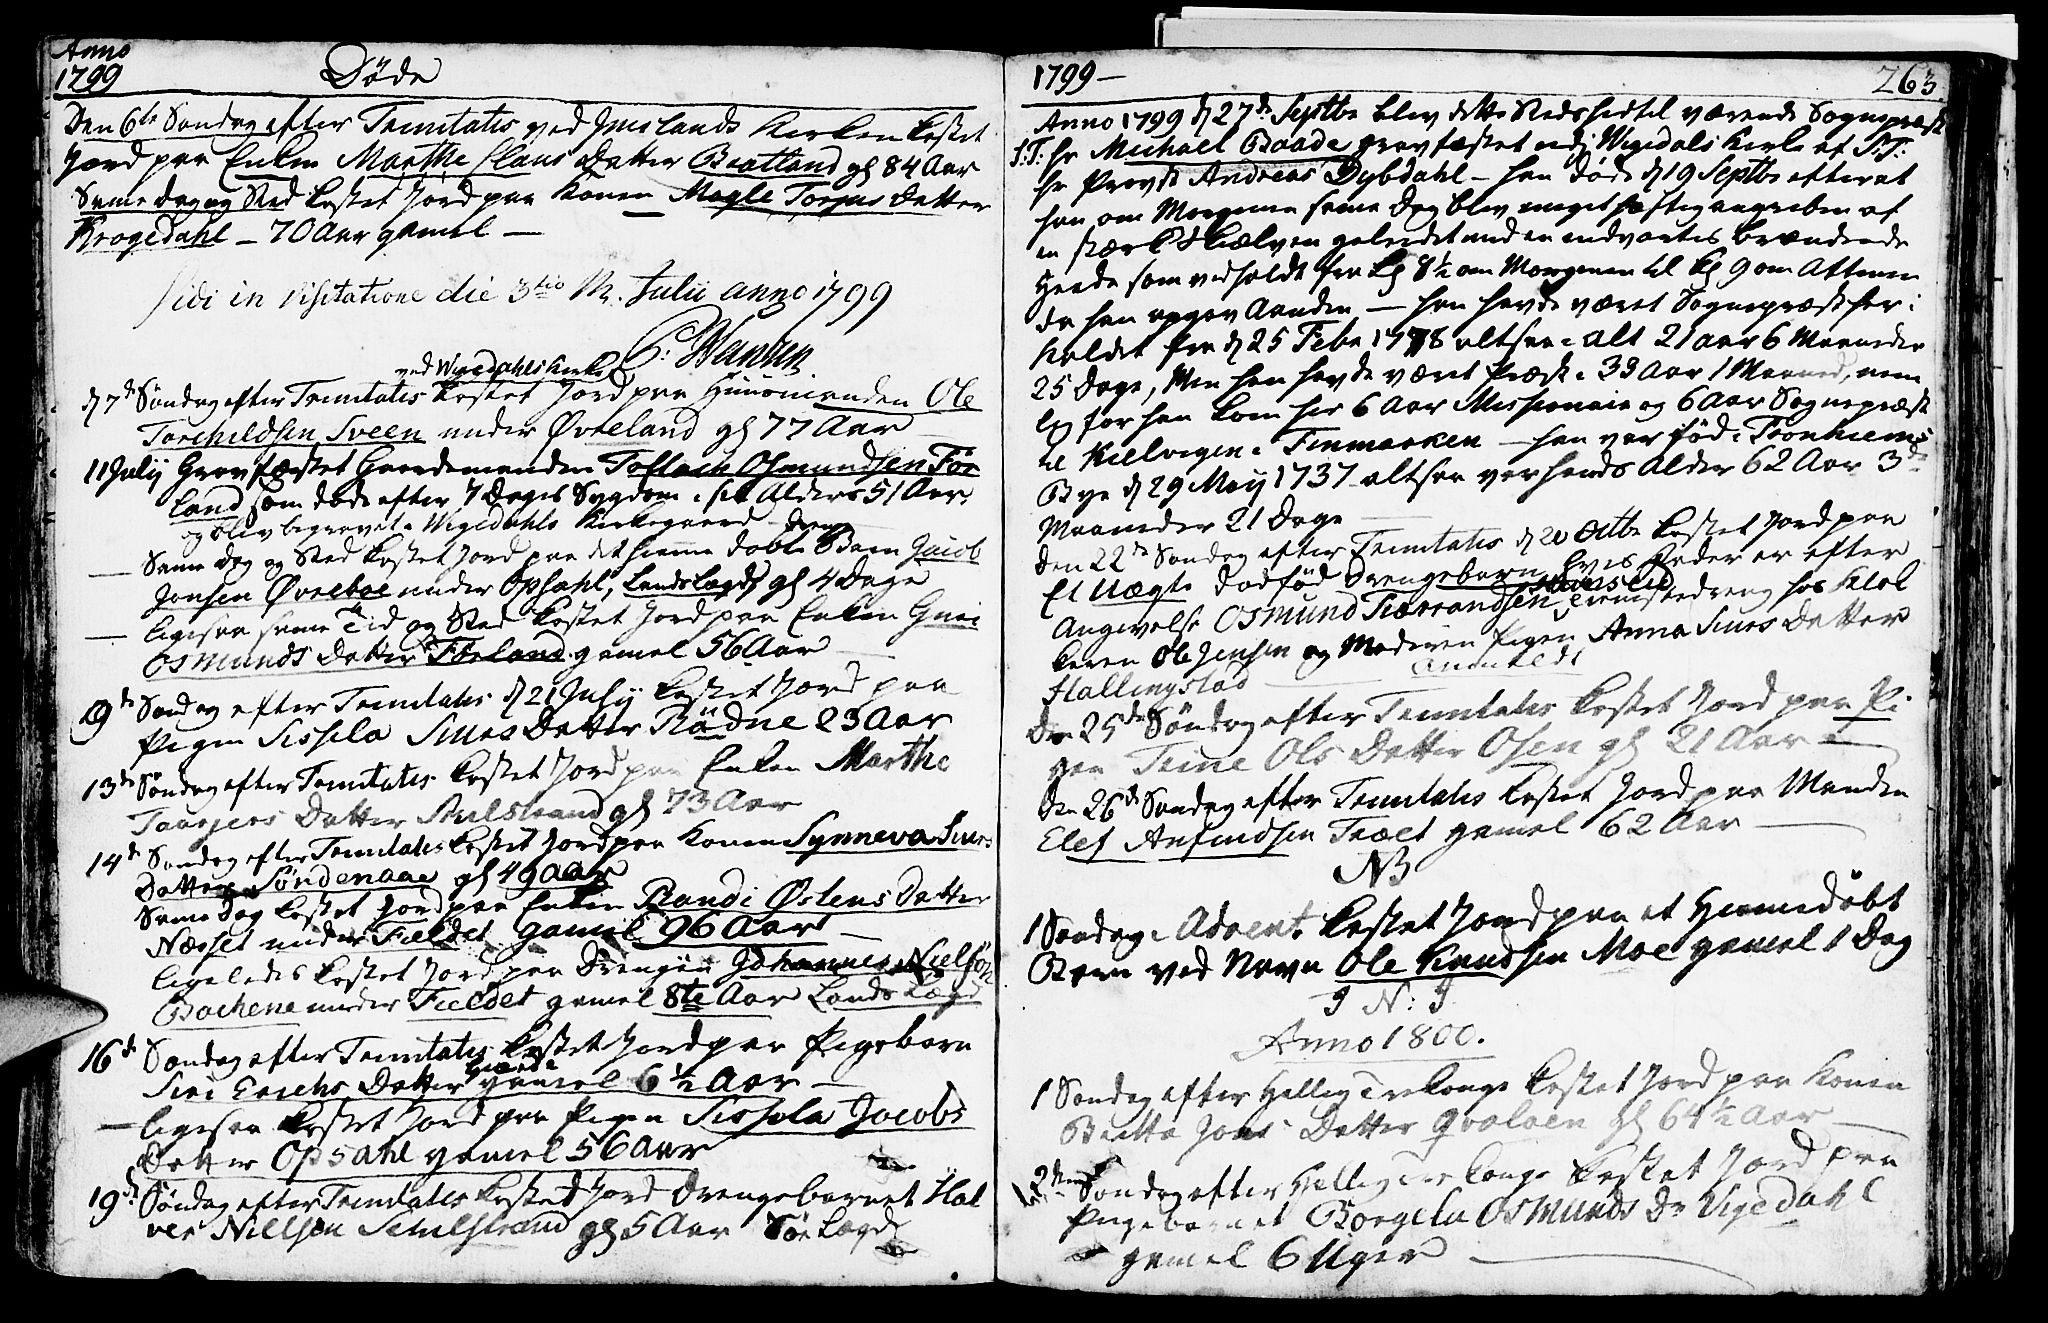 Anno
1799 Døde
Den 6te Søndag efter Trinitatis ved Imslands Kirken kastet
Jord paa Enken Marthe Claus Datter Braatland gl 84 Aar
Same dag og Sted kastet Jord paa Konen Magle Torjus Datter
Krogedahl – 70 Aar gamel –
Vidi in Visitatione die 3tio M. Julii anno 1799
P: Hansen
ved Wigedahls Kirke
d 7de Søndag efter Trinitatis kastet Jord paa Huusmanden Ole
Torchildsen Sveen under Øvreland gl 77 Aar
11 July Gravfæstet Gaardmanden Tollach Osmundsen Før
land som døde efter 7 Dages Sygdom i sit Alders 51 Aar
og blev begravet i Wigedahls Kirkegaard
– Same Dag og Sted kastet Jord paa det hieme døbte Drenge Barn Jacob
Jonsen Øvreboe under Opsahl, Landslægd, gl 4 Dage
– ligesaa same Tid og Sted kastet Jord paa Enken Guri
Osmunds Datter Førland gamel 56 Aar
9de Søndag efter Trinitatis d 21 July kastet Jord paa
Pigen Sissela Siurs Datter Rødne 23 Aar
13de Søndag efter Trinitatis kastet Jord paa Enken Marthe
Taarjers Datter gl 73 Aar
14de Søndag efter Trinitatis kastet Jord paa Konen Synneva Siurs
Datter Søndenaae gl 49 Aar
Same Dag kastet Jord paa Enken Randi Østens Datter
Næsset under Fieldet gamel 96 Aar
ligeledes kastet Jord paa Drengen Johannes Nielsøn
Bachene under Fieldet gamel 8te Aar Lands Lægd
16de Søndag efter Trinitatis kastet Jord paa Pigebarn
Siri Erichs Datter gamel 6½ Aar –
– ligesaa kastet Jord paa Pigen Sissela Jacobs
Datter Opsahl gamel 56 Aar
19de Søndag efter Trinitatis kastet Jord Drengebarnet Hal
ver Nielsen gl 5 Aar Søe Lægd
1799 – 263
Anno 1799 d 27de Septbr blev dette Steds hidtil værende Sognepræst
S:T: Hr Michael Baade gravfæstet ved Wigedals Kirke af S:T:
Hr Provst Andreas Dybdahl – han døde d 19 Septbr efterat
han om Morgenen same Dag blev meget hæftig angreben af
en stærk Skiælven geleidet med en indvortes brændende
Heede som vedholdt fra Kl 8½ om Morgenen til Kl 9 om Aftenen
da han opgav Aanden – han havde været Sognepræst her i
Kaldet fra d 25 Febr 1778 altsaa i alt 21 aar 6 Maaneder
25 Dage, Men han havde været Præst i 33 Aar 1 Maaned, nem
lig før han kom her 6 Aar Missionair og 6 Aar Sognepræst
til Kielvigen i Finmarken – han var fød i Tronhiems
Bye d 29 May 1737 altsaa var hands Alder 62 Aar 3de
Maaneder 21 Dage
Den 22de Søndag efter Trinitatis d 20 Octbr kastet Jord paa
Et Uægte dødfød Drengebarn, hvis Fader er efter
Angivelse Osmund Tiærrandsen Tienistedreng hos Klok
keren Ole Jensen og Moderen Pigen Anna Siurs Datter
Hallingstad
Den 25de Søndag efter Trinitatis kastet Jord paa Pi
gen Trine Ols Datter Osen gl 21 Aar –
Den 26de Søndag efter Trinitatis kastet Jord paa Manden
Elef Anfindsen Træet gamel 62 Aar –
NB
1 Søndag i Advent kastet Jord paa et Hiemedøbt
Barn ved Navn Ole Knudsen Moe gamel 1 Dag
I N: J
Anno 1800.
1 Søndag efter Hellig Tre konge kastet Jord paa Konen
Britta Jons Datter Qvaloen gl 64½ Aar –
2den Søndag efter Hellig Tre konge kastet Jord paa
Pigebarnet Borgela Osmunds Dr Vigedahl
gamel 6 Uger –